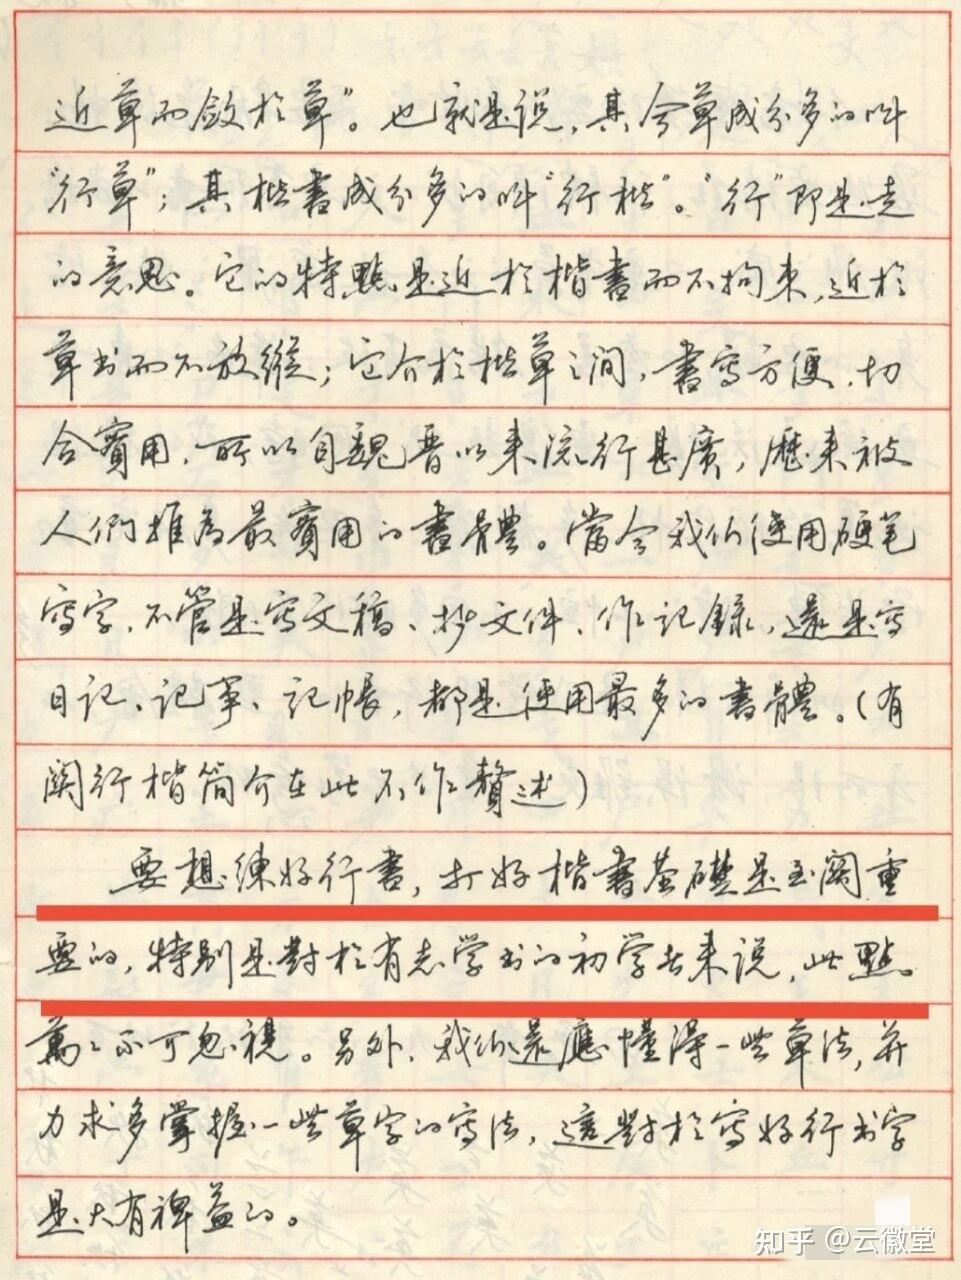 近草而斂於草”。也就是说，其今草成分多的叫
“行草”；其楷書成分多的叫“行楷”。“行”即是走
的意思。它的特點是近於楷書而不拘束，近於
草书而不放縱；它介於楷草之间，書寫方便，切
合實用，所以自魏晋以来流行甚廣，歷来被
人們推為最實用的書體。當今我们使用硬笔
寫字，不管是寫文稿、抄文件、作記錄，還是寫
日记、记事、记帳，都是使用最多的書體。（有
関行楷简介在此不作贅述）
要想練好行書，打好楷書基礎是至関重
要的，特别是對於有志学书的初学者来说，此點
萬萬不可忽視。另外，我们還應懂得一些草法，并
力求多掌握一些草字的寫法，這對於寫好行书字
是大有裨益的。
知乎 @云徽堂